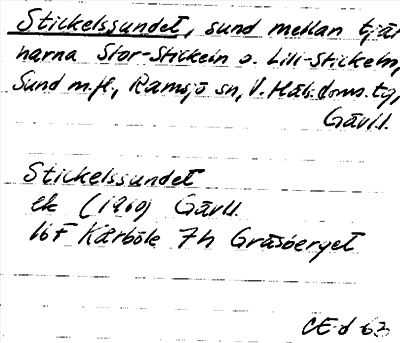 Stickelssundet, sund mellan tjär
narna Stor-Stickeln o. Lill-Stickeln,
Sund m.fl., Ramsjö sn, V. Häls. doms. tg,
Gävl.l.
Stickelssundet
ek (1960) Gävl.l.
16F Kårböle 7h Gråsberget
CE-d 63